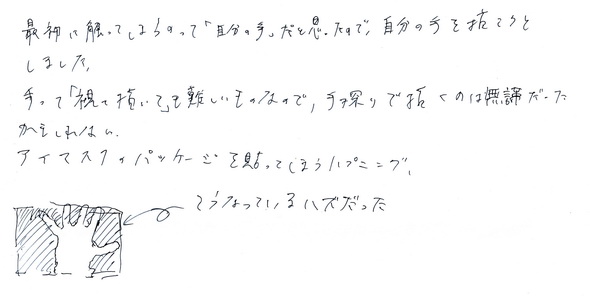 最初に触ってしまうのって「自分の手」だと思ったので、自分の手を描こうと
しました。
手って「視て描いて」も難しいものなので、手探りで描くのは無謀だった
かもしれない。
アイマスクのパッケージを貼ってしまうハプニング。
こうなっているハズだった